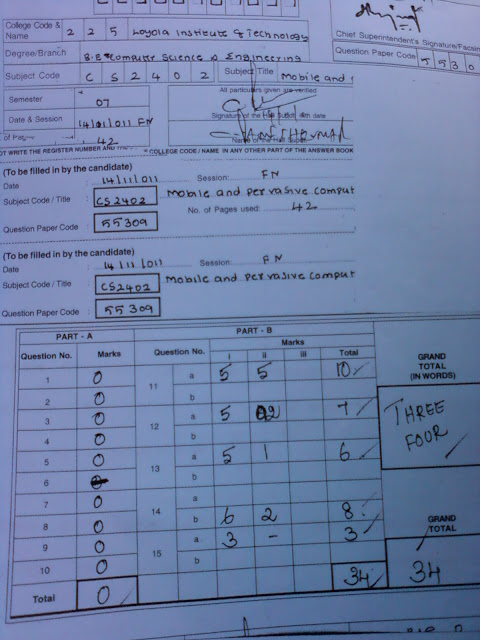 College Code & Name 2 2 5 Loyola Institute of Technology
Chief Superintendent's Signature/Facsim
Degree/Branch B.E Computer Science & Engineering
Question Paper Code 5 5 3 0
Subject Code C S 2 4 0 2 Subject Title Mobile and
All particulars given are verified
Semester 07
Signature of the Hall Supdt. with date
Date & Session 14/11/011 FN
of Pages 42
Name of the Hall Supdt.
NOT WRITE THE REGISTER NUMBER AND COLLEGE CODE / NAME IN ANY OTHER PART OF THE ANSWER BOOK
(To be filled in by the candidate)
Date : 14/11/011 Session: FN
Subject Code / Title : CS2402 Mobile and Pervasive Comput
No. of Pages used: 42
Question Paper Code : 55309
(To be filled in by the candidate)
Date : 14/11/011 Session: FN
Subject Code / Title : CS2402 Mobile and Pervasive Comput
Question Paper Code : 55309
PART - A PART - B
Question No. Marks Question No. Marks GRAND TOTAL (IN WORDS)
i ii iii Total
1 0 11 a 5 5 10
2 0 b
3 0 12 a 5 2 7 THREE FOUR
4 0 b
5 0 13 a 5 1 6
6 b
7 0 14 a
8 0 b 6 2 8 GRAND TOTAL
9 0 15 a 3 - 3
10 0 b
Total 0 34 34